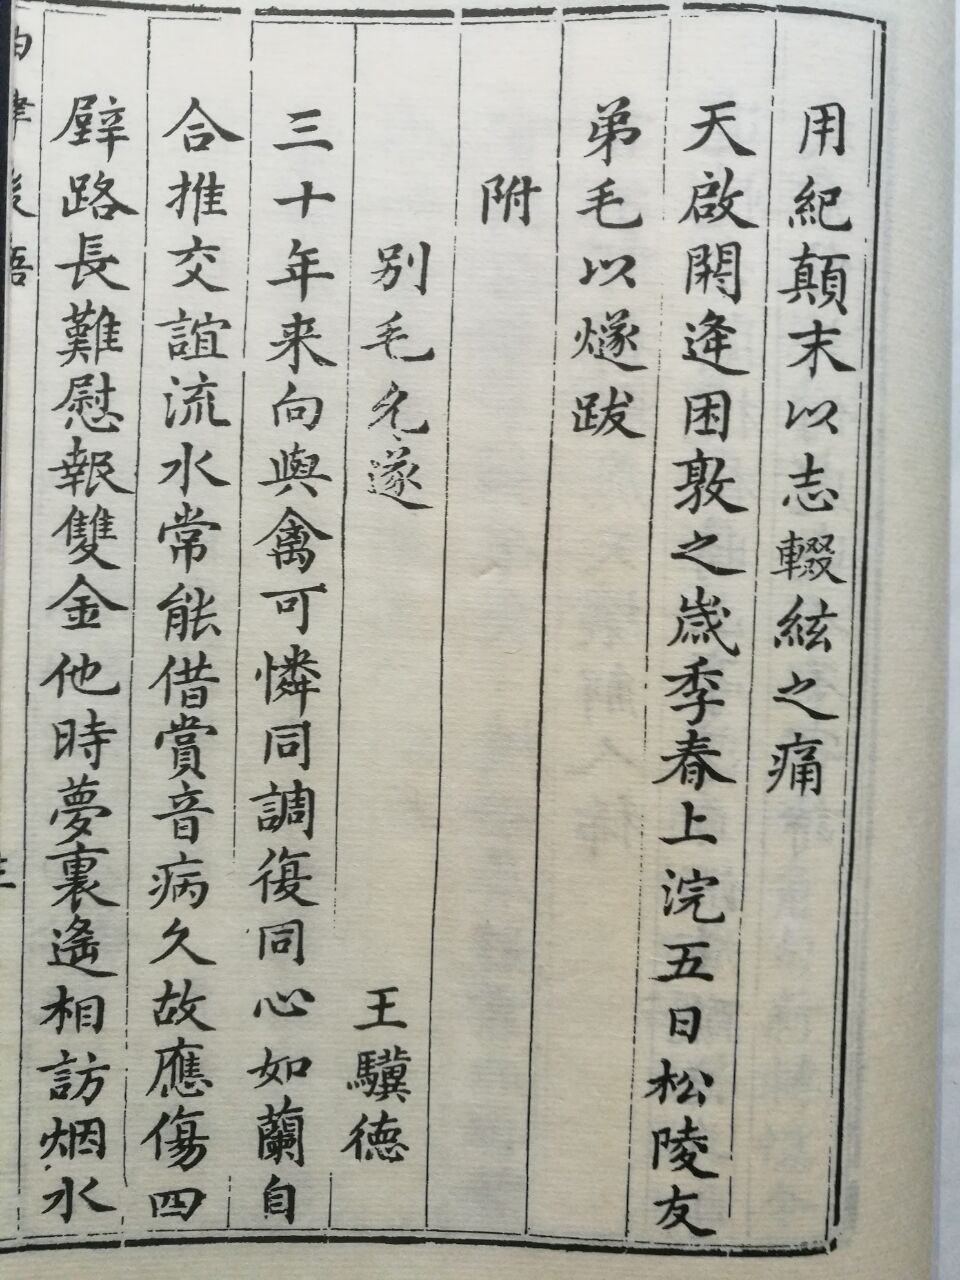 用紀顛末以志輟絃之痛
天啟閼逢困敦之歲季春上浣五日松陵友
弟毛以燧跋
附
別毛允遂
王驥德
三十年来向與禽可憐同調復同心如蘭自
合推交誼流水常能借賞音病久故應傷四
壁路長難慰報雙金他時夢裏遙相訪烟水